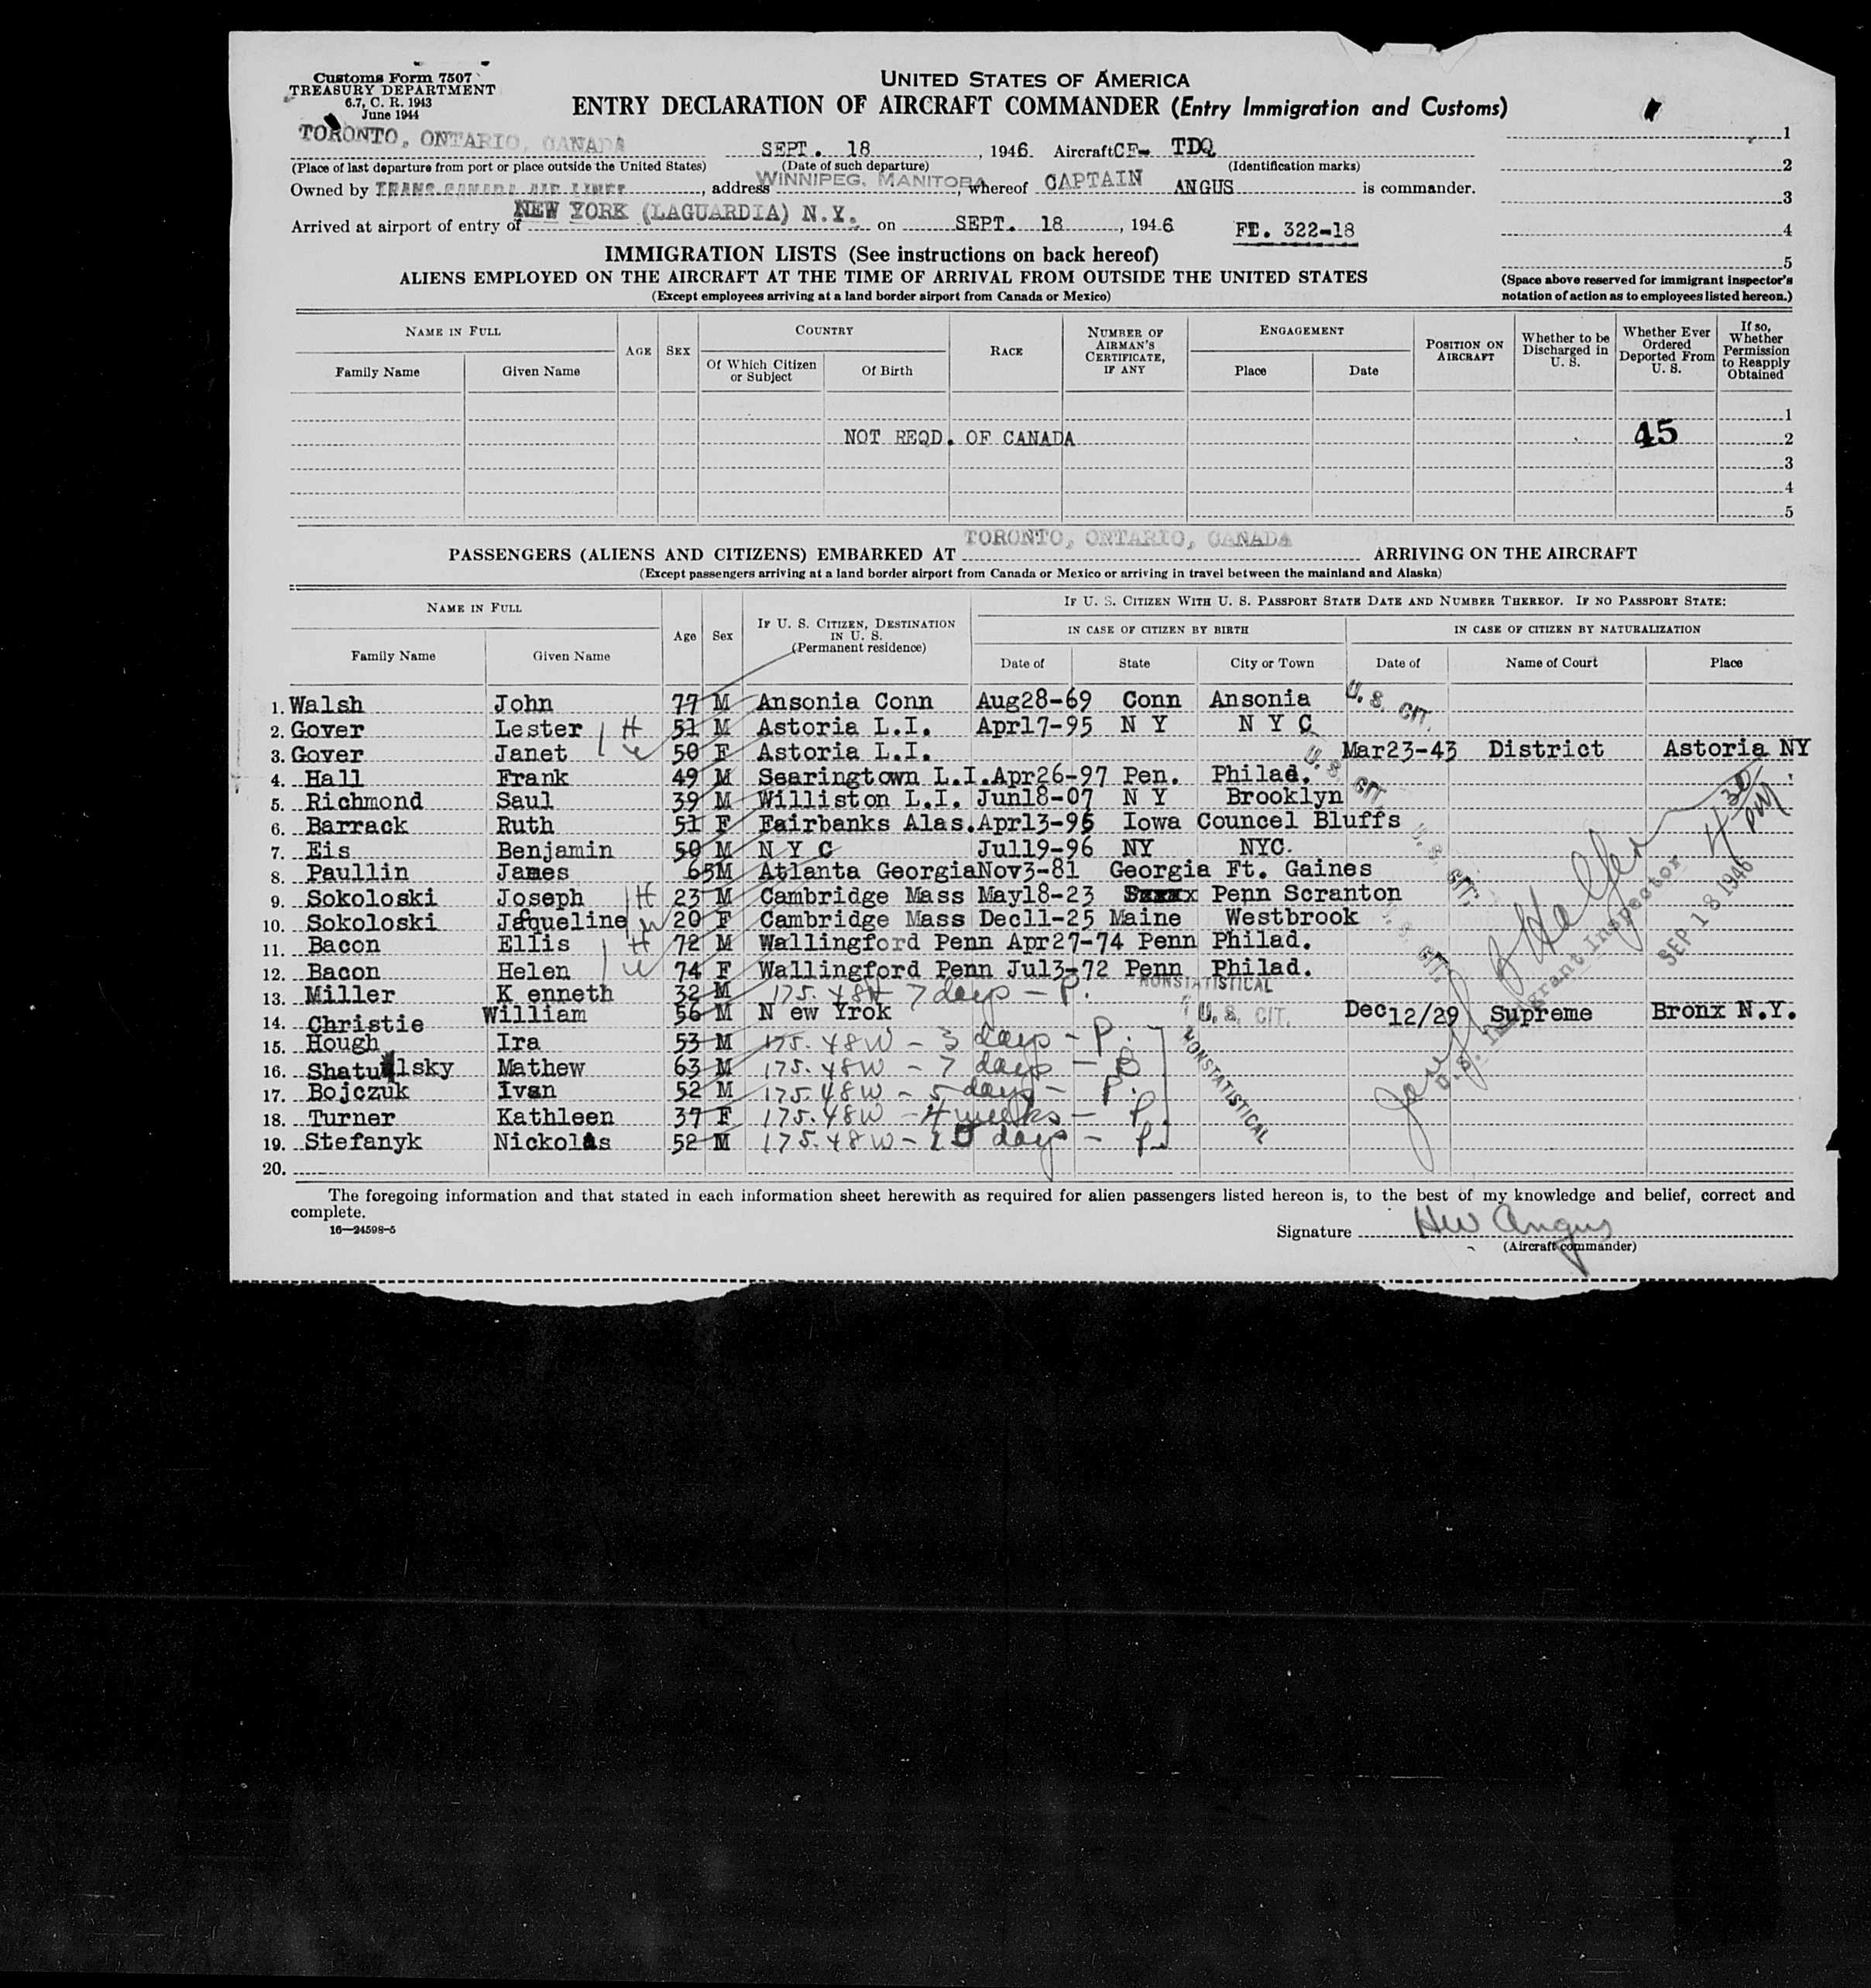 Customs Form 7507
TREASURY DEPARTMENT
6.7, C. R. 1943
June 1944
UNITED STATES OF AMERICA
ENTRY DECLARATION OF AIRCRAFT COMMANDER (Entry Immigration and Customs)
TORONTO, ONTARIO, CANADA SEPT. 18, 1946 Aircraft CF- TDQ
(Place of last departure from port or place outside the United States) (Date of such departure) (Identification marks)
Owned by TRANS-CANADA AIR LINES, address WINNIPEG, MANITOBA, whereof CAPTAIN ANGUS is commander.
Arrived at airport of entry of NEW YORK (LAGUARDIA) N.Y. on SEPT. 18, 1946 FL. 322-18
1
2
3
4
5
(Space above reserved for immigrant inspector's notation of action as to employees listed hereon.)
IMMIGRATION LISTS (See instructions on back hereof)
ALIENS EMPLOYED ON THE AIRCRAFT AT THE TIME OF ARRIVAL FROM OUTSIDE THE UNITED STATES
(Except employees arriving at a land border airport from Canada or Mexico)
NAME IN FULL AGE SEX COUNTRY RACE NUMBER OF AIRMAN'S CERTIFICATE, IF ANY ENGAGEMENT POSITION ON AIRCRAFT Whether to be Discharged in U. S. Whether Ever Ordered Deported From U. S. If so, Whether Permission to Reapply Obtained
Family Name Given Name Of Which Citizen or Subject Of Birth Place Date
1
NOT REQD. OF CANADA 45 2
3
4
5
PASSENGERS (ALIENS AND CITIZENS) EMBARKED AT TORONTO, ONTARIO, CANADA ARRIVING ON THE AIRCRAFT
(Except passengers arriving at a land border airport from Canada or Mexico or arriving in travel between the mainland and Alaska)
NAME IN FULL Age Sex IF U. S. CITIZEN, DESTINATION IN U. S. (Permanent residence) IF U. S. CITIZEN WITH U. S. PASSPORT STATE DATE AND NUMBER THEREOF. IF NO PASSPORT STATE:
IN CASE OF CITIZEN BY BIRTH IN CASE OF CITIZEN BY NATURALIZATION
Family Name Given Name Date of State City or Town Date of Name of Court Place
1. Walsh John 77 M Ansonia Conn Aug28-69 Conn Ansonia U. S. CIT.
2. Gover Lester H 51 M Astoria L.I. Apr17-95 N Y N Y C
3. Gover Janet W 50 F Astoria L.I. U. S. CIT. Mar23-43 District Astoria NY
4. Hall Frank 49 M Searingtown L.I. Apr26-97 Pen. Philad.
5. Richmond Saul 39 M Williston L.I. Jun18-07 N Y Brooklyn
6. Barrack Ruth 51 F Fairbanks Alas. Apr13-95 Iowa Councel Bluffs U. S. CIT.
7. Eis Benjamin 50 M N Y C Jul19-96 NY NYC.
8. Paullin James 65M Atlanta Georgia Nov3-81 Georgia Ft. Gaines
9. Sokoloski Joseph H 23 M Cambridge Mass May18-23 Penn Scranton
10. Sokoloski Jaqueline W 20 F Cambridge Mass Dec11-25 Maine Westbrook U. S. CIT.
11. Bacon Ellis H 72 M Wallingford Penn Apr27-74 Penn Philad.
12. Bacon Helen W 74 F Wallingford Penn Jul3-72 Penn Philad.
13. Miller K enneth 32 M 175.48W 7 days - P. NONSTATISTICAL
14. Christie William 56 M N ew Yrok U. S. CIT. Dec12/29 Supreme Bronx N.Y.
15. Hough Ira 53 M 175.48W - 3 days - P.
16. Shatulsky Mathew 63 M 175.48W - 7 days - B
17. Bojczuk Ivan 52 M 175.48W - 5 days - P.
18. Turner Kathleen 37 F 175.48W - 4 weeks - P
19. Stefanyk Nickolas 52 M 175.48W - 10 days - P.
20.
NONSTATISTICAL
U. S. Immigrant Inspector
SEP 18 1946
4 30 PM
The foregoing information and that stated in each information sheet herewith as required for alien passengers listed hereon is, to the best of my knowledge and belief, correct and
complete.
16—24598-5
Signature HW Angus
(Aircraft commander)